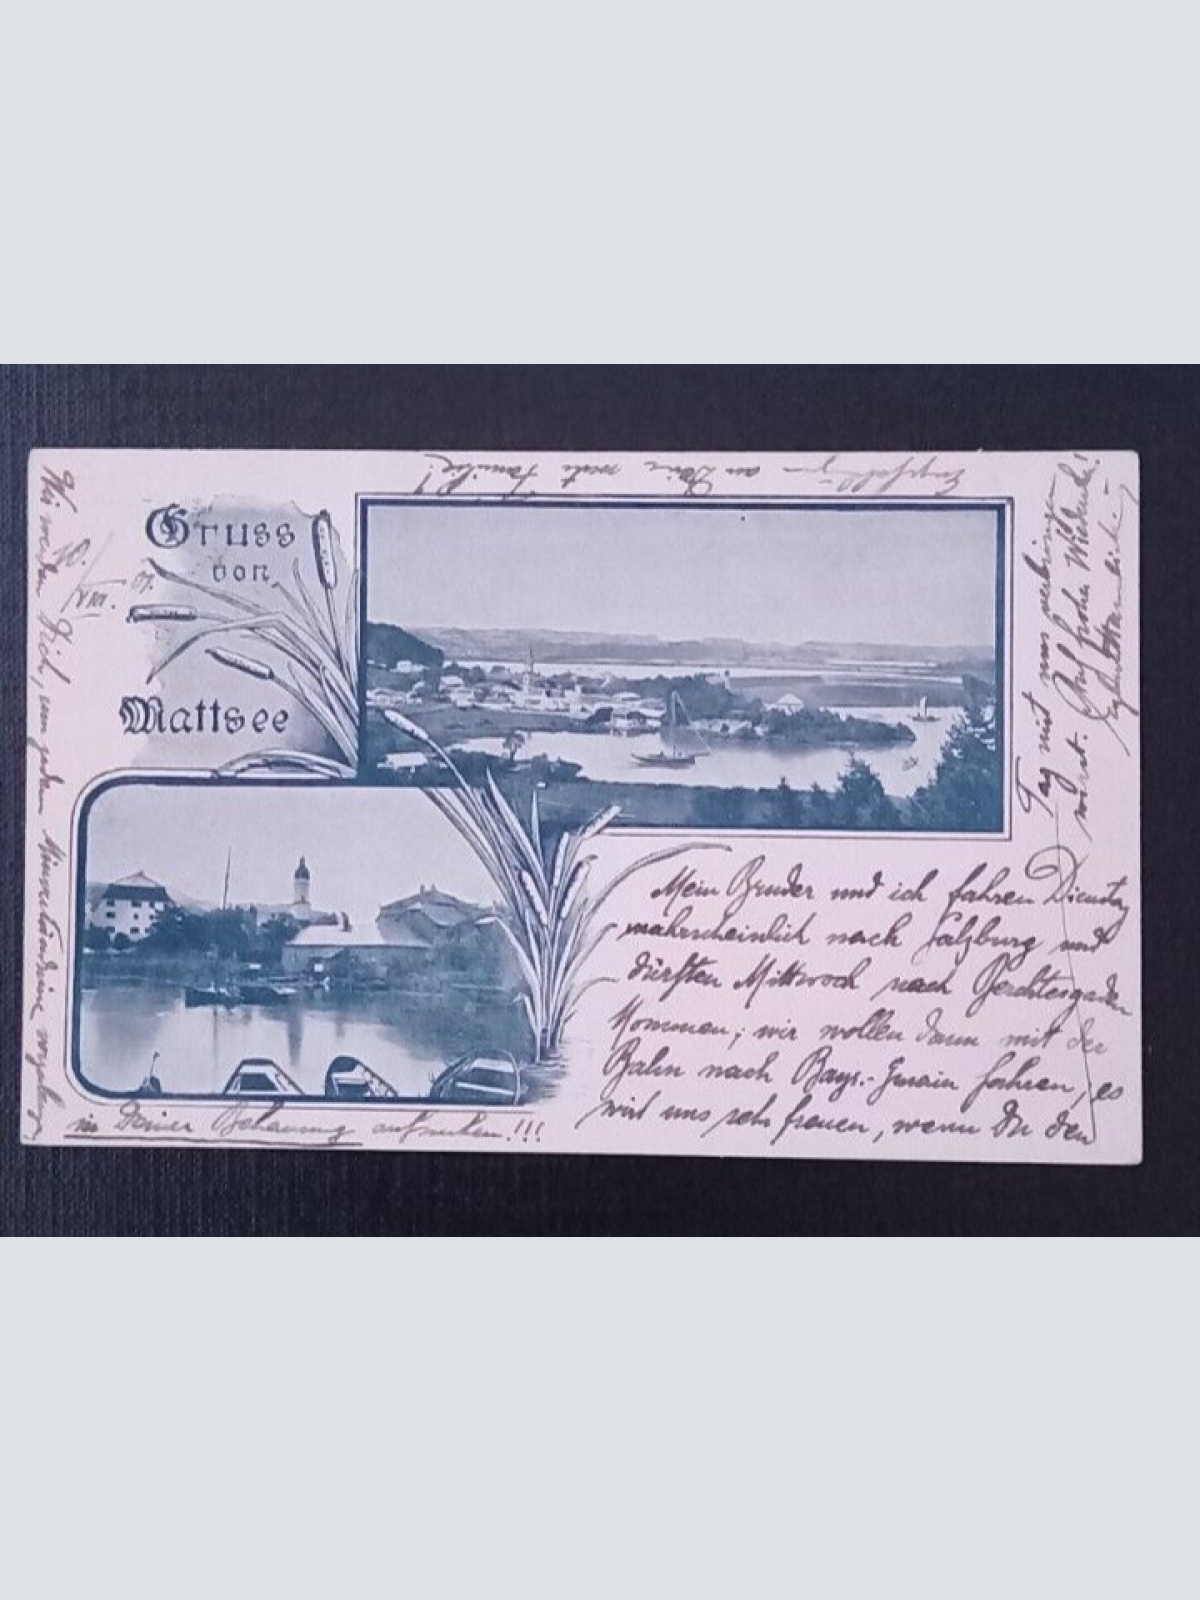 Gruss
von
Mattsee
Mein Bruder und ich fahren Dienstag
wahrscheinlich nach Salzburg und
dürften Mittwoch nach Berchtesgaden
kommen; wir wollen dann mit der
Bahn nach Bayr.-Gmain fahren, es
wird uns sehr freuen, wenn Du den
Tag mit uns verbringen
wirst. Auf frohes Wiederseh'n!
Wir werden Dich, um jedem Missverständnisse vorzubeugen
in Deiner Behausung aufsuchen!!!